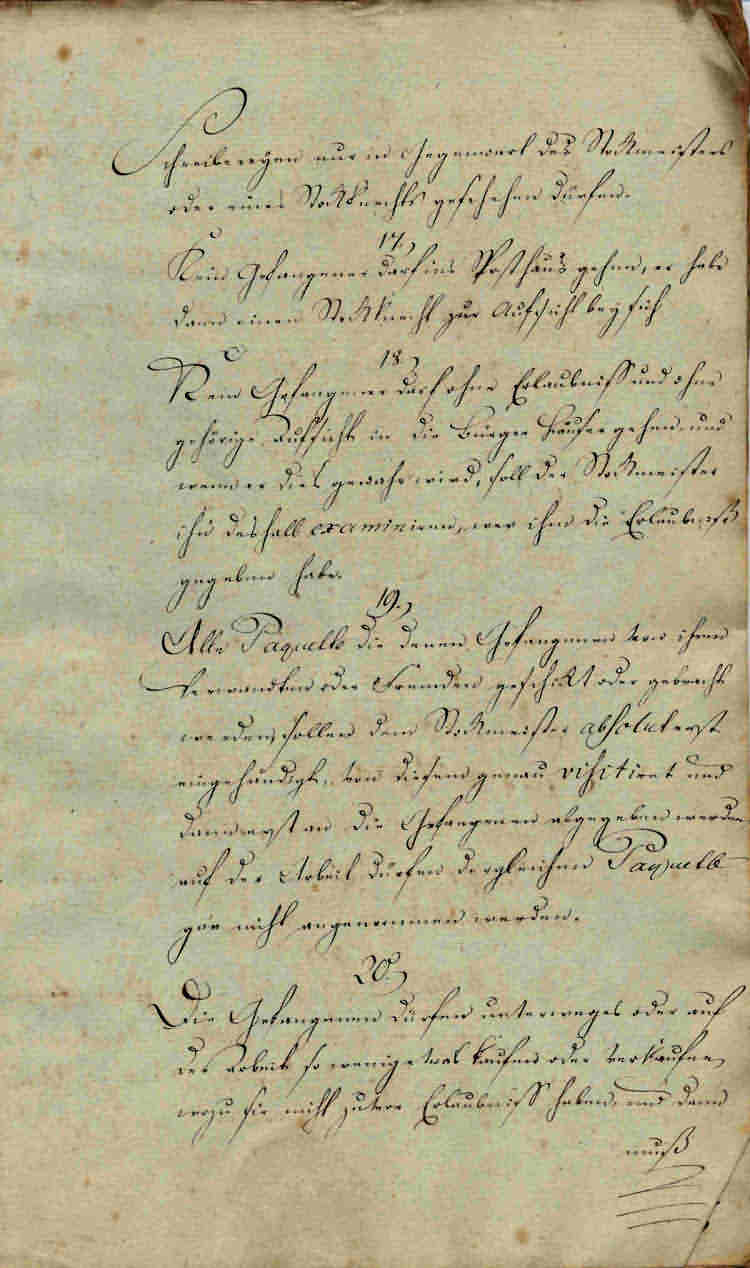 Schreibereyen nur in Gegenwart des Stockmeisters
oder eines Stockknechts geschehen dürfen.
17.,
Kein Gefangener darf ins Posthaus gehen, er habe
dann einen Stockknecht zur Aufsicht bey sich
18.,
Kein Gefangener darf ohne Erlaubniß und ohne
gehörige Aufsicht in die Bürger Häuser gehen, und
wenn er dies gewahr wird, soll der Stockmeister
ihn deshalb examiniren, wer ihm die Erlaubniß
gegeben habe.
19.,
Alle Paquette die denen Gefangenen von ihren
Verwandten oder Fremden geschickt oder gebracht
werden, sollen dem Stockmeister absolut erst
eingehändigt, von diesem genau visitiret und
dann erst an die Gefangenen abgegeben werden
auf der Arbeit dürfen dergleichen Paquette
gar nicht angenommen werden.
20.,
Die Gefangenen dürfen unterweges oder auf
der Arbeit so wenig etwas kaufen oder verkaufen,
wozu sie nicht zuvor Erlaubniß haben, und dann
muß